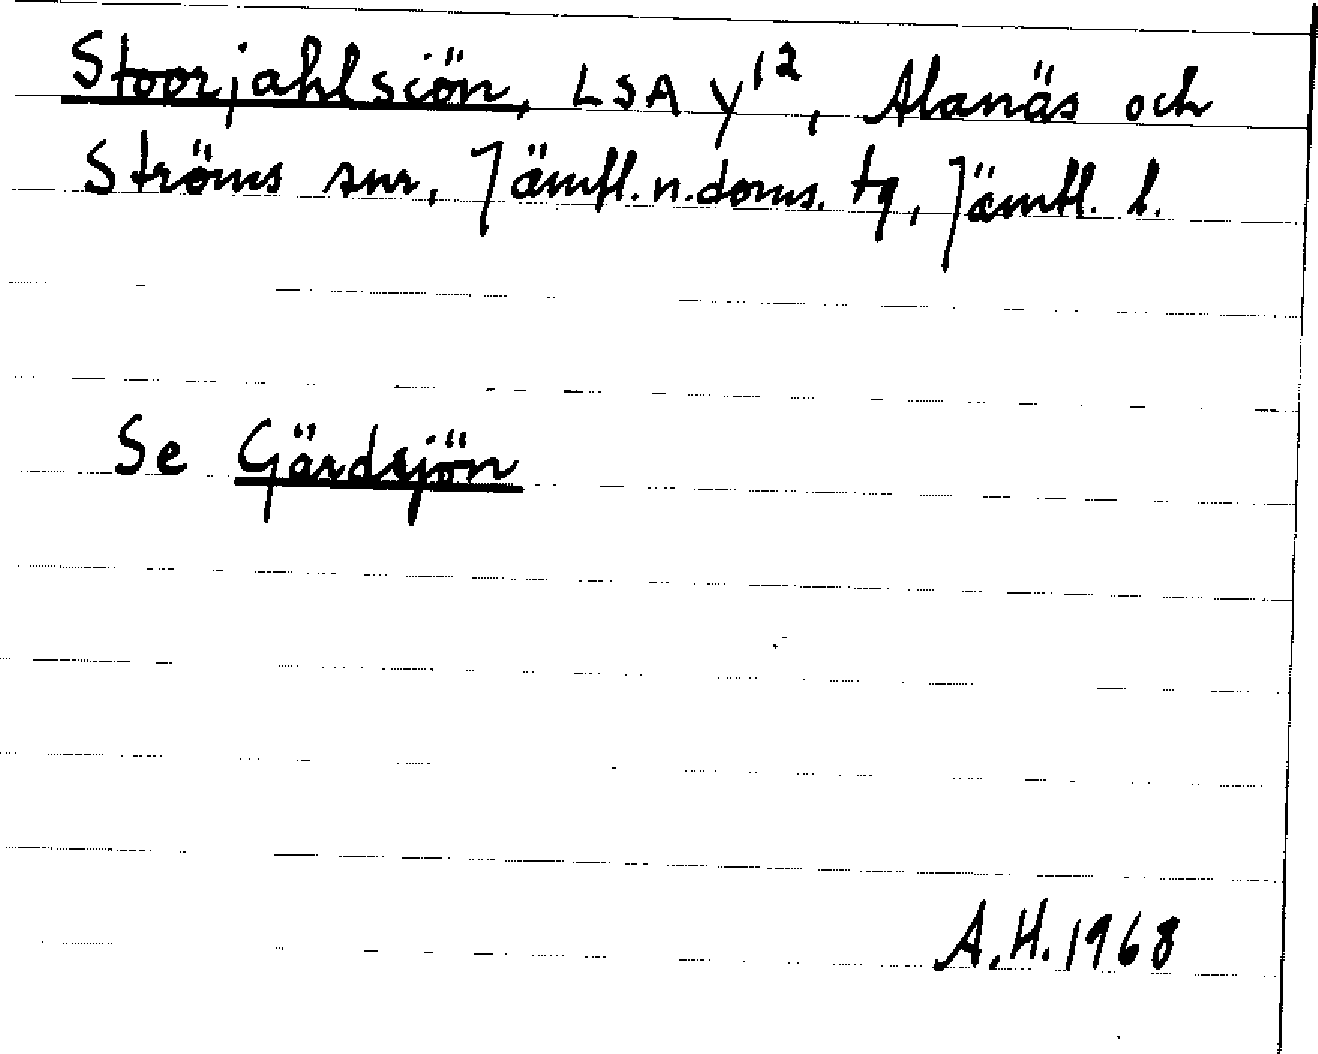 Stoorjahlsiön, LSA Y12, Alanäs och
Ströms snr, Jämtl. n. doms. tg, Jämtl. l.
Se Gärdsjön
A.H. 1968